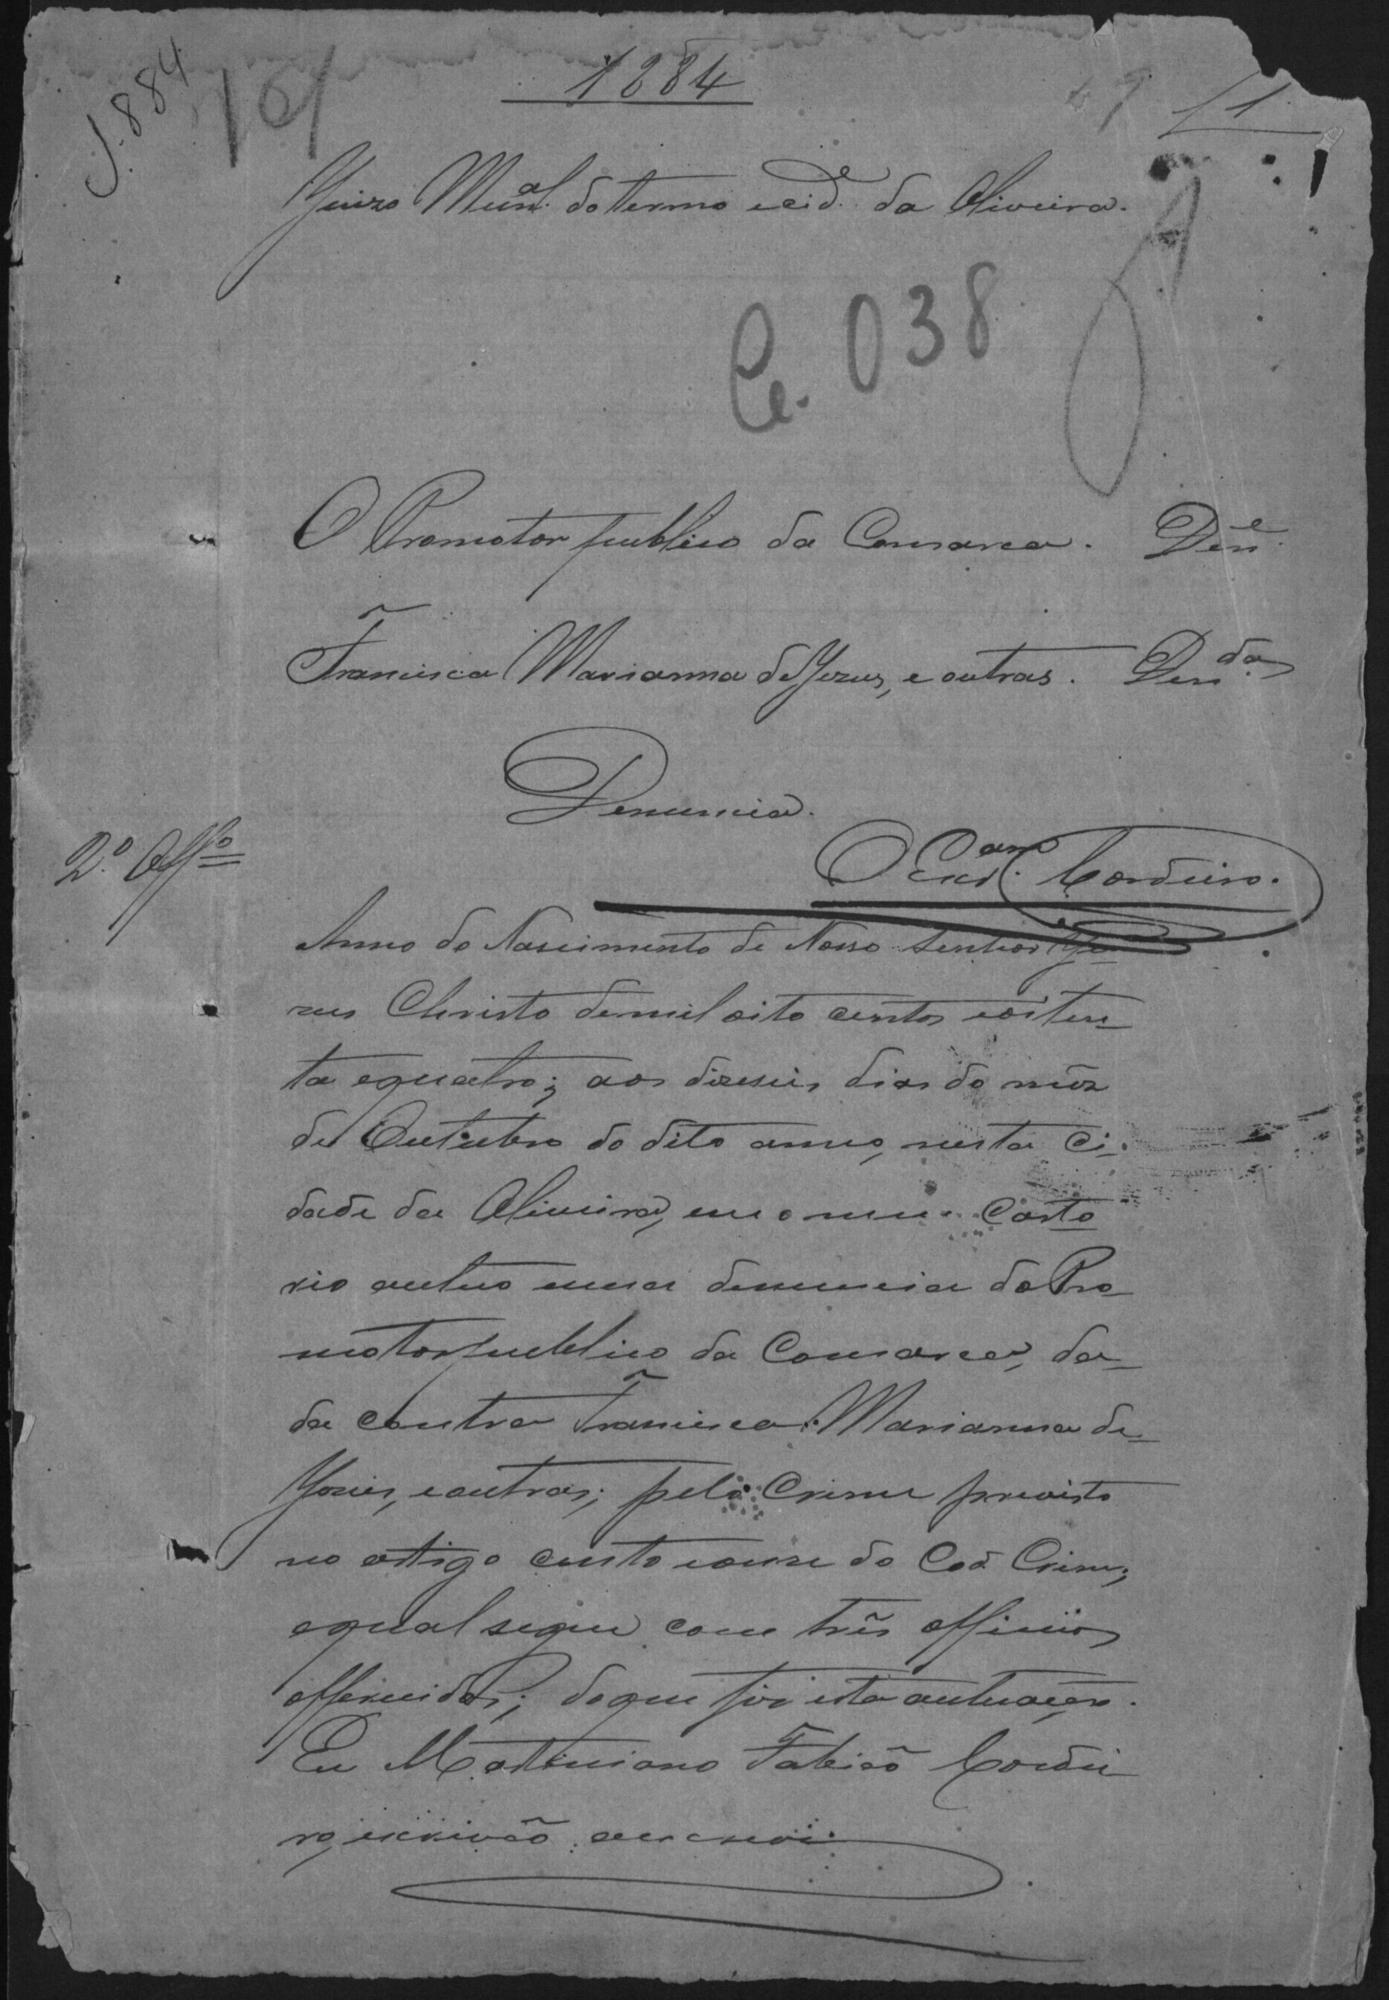 1884
J. 884
101
1
Juizo Mun.al do termo e cid.e da Oliveira.
Cr. 038
O Promotor publico da Comarca. Den.e
Francisca Marianna de Jezus, e outras. Den.das
Denuncia.
2.º Off.º
O Escr.am Cordeiro.
Anno do Nascimento de Nosso Senhor Je
zus Christo de mil oito centos e oiten
ta e quatro; aos dizeseis dias do mêz
de Outubro do dito anno, nesta Ci-
dade da Oliveira, em o meu Carto
rio autuo uma denuncia do Pro
motor publico da Comarca, da-
da contra Francisca Marianna de
Jezus, e outras; pelo Crime previsto
no artigo cento e onze do Cod. Crim;
e qual segue com três officios
offerecidos; do que fiz esta autuação.
Eu Martiniano Fabião Cordei
ro, escrivão escrevi.